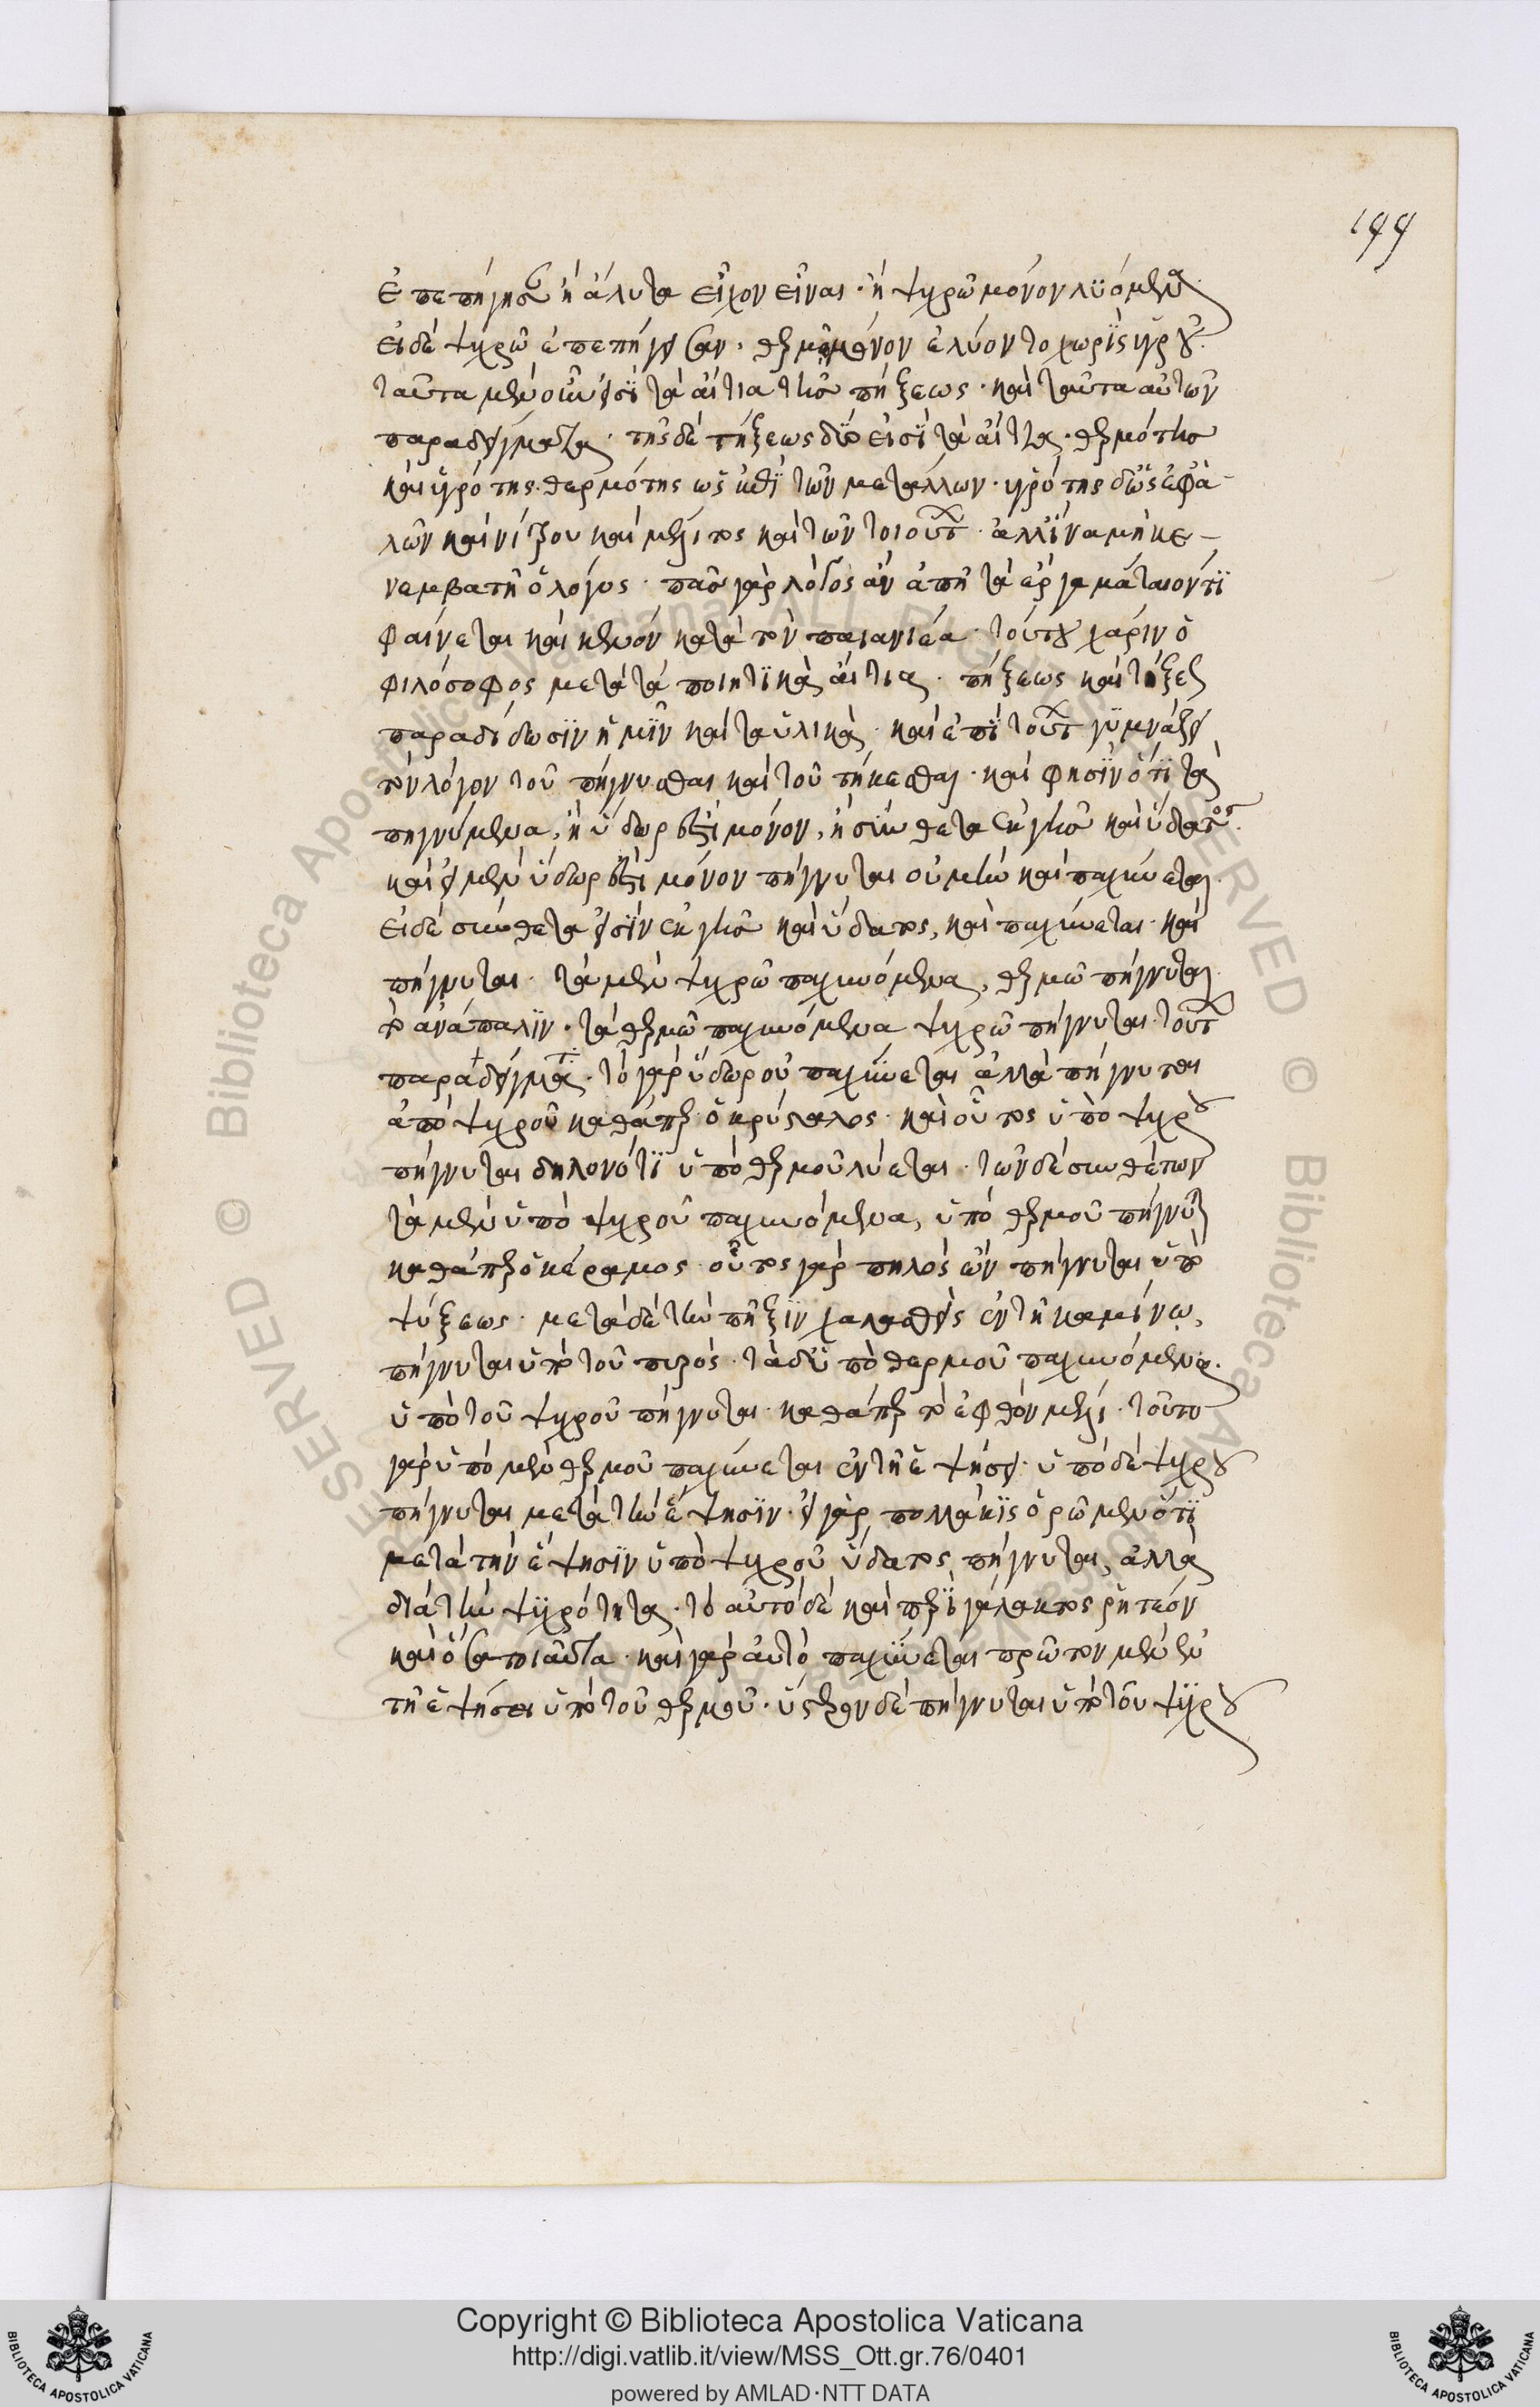 199
ἐπεπήγησαν ἢ ἄλυτα εἶχον εἶναι· ἢ ψυχρῶ μόνον λϋόμενα
εἰ δὲ ψυχρῶ ἐπεπήγεισαν, θερμῶ μόνον ἐλύοντο χωρὶς ὑγροῦ.
ταῦτα μὲν οὖν εἰσὶ τὰ αἴτια τῆς πήξεως· καὶ ταῦτα αὐτῶν
παραδείγματα· τῆς δὲ τήξεως δύο εἰσὶ τὰ αἴτια· θερμότης
καὶ ὑγρότης· θερμότης ὡς ἐπὶ τῶν μετάλλων· ὑγρότης δ' ὡς ἐφ' ἁ-
λῶν καὶ νίτρου καὶ μέλιτος καὶ τῶν τοιούτων· ἀλλ' ἵνα μὴ κε-
νεμβατῆ ὁ λόγος· πᾶς γὰρ λόγος ἂν ἀπῆ τὰ ἔργα μάταιόν τϊ
φαίνεται καὶ κενὸν κατὰ τὸν παιανιέα· τούτου χάριν ὁ
φιλόσοφος μετὰ τὰ ποιητϊκὰ αἴτια· πήξεως καὶ τήξεως
παραδίδωσϊν ἡμῖν καὶ τὰ ὑλικὰ· καὶ ἐπὶ τούτων γυμνάζει
τὸν λόγον τοῦ πήγνυσθαι καὶ τοῦ τήκεσθαι· καὶ φησὶν ὅτϊ τὰ
πηγνύμενα, ἢ ὕδωρ ἐστὶ μόνον, ἢ σύνθετα ἐκ γῆς καὶ ὕδατος.
καὶ εἰ μὲν ὕδωρ ἐστὶ μόνον πήγνυται οὐ μὴν καὶ παχύνεται·
εἰ δὲ σύνθετα εἰσὶν ἐκ γῆς καὶ ὕδατος, καὶ παχύνεται· καὶ
πήγνυται· τὰ μὲν ψυχρῶ παχυνόμενα, θερμῶ πήγνυται·
τὸ ἀνάπαλϊν· τὰ θερμῶ παχυνόμενα ψυχρῶ πήγνυται· τούτων
παράδειγμα· τὸ γὰρ ὕδωρ οὐ παχύνεται ἀλλὰ πήγνυται
ἀπὸ ψυχροῦ καθάπερ ὁ κρύσταλος· καὶ οὗτος ὑπὸ ψυχροῦ
πήγνυται δηλονότϊ ὑπὸ θερμοῦ λύεται· τῶν δὲ συνθέτων
τὰ μὲν ὑπὸ ψυχροῦ παχυνόμενα, ὑπὸ θερμοῦ πήγνυται
καθάπερ ὁ κέραμος· οὗτος γὰρ πηλὸς ὢν πήγνυται ὑπὸ
ψύξεως· μετὰ δὲ τὴν πῆξϊν χαλασθεὶς ἐν τῆ καμίνω,
πήγνυται ὑπὸ τοῦ πυρός· τὰ δ' ὑπὸ θερμοῦ παχυνόμενα.
ὑπὸ τοῦ ψυχροῦ πήγνυται· καθάπερ τὸ ἑφθὸν μέλι· τοῦτο
γὰρ ὑπὸ μὲν θερμοῦ παχύνεται ἐν τῆ ἑψήσει· ὑπὸ δὲ ψυχροῦ
πήγνυται μετὰ τὴν ἕψησϊν· εἰ γὰρ πολλάκϊς ὁρῶμεν ὅτϊ
μετὰ τὴν ἕψησϊν ὑπὸ ψυχροῦ ὕδατος πήγνυται, ἀλλὰ
διὰ τὴν ψυχρότητα· τὸ αὐτὸ δὲ καὶ περὶ γάλακτος ῥητέον
καὶ ὅσα τοιαῦτα· καὶ γὰρ αὐτὸ παχύνεται πρῶτον μὲν ἐν
τῆ ἑψήσει ὑπὸ τοῦ θερμοῦ· ὕστερον δὲ πήγνυται ὑπὸ τοῦ ψυχροῦ
© Biblioteca Apostolica Vaticana ALL RIGHTS RESERVED
Copyright © Biblioteca Apostolica Vaticana
http://digi.vatlib.it/view/MSS_Ott.gr.76/0401
powered by AMLAD·NTT DATA
BIBLIOTECA APOSTOLICA VATICANA
BIBLIOTECA APOSTOLICA VATICANA